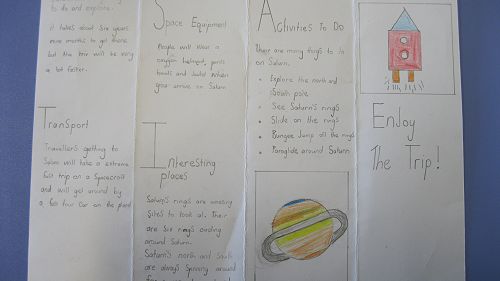 to do and explore.
It takes about six years
nine months to get there
but the trip will be very
a lot faster.
Transport
Travellers getting to
Saturn will take a extreme
fast trip on a Spacecraft
and will get around by
a fast tour car on the planet
Space Equipment
People will wear a
oxygen helmet, gloves
boots and suits when
you arrive on Saturn
Interesting
places
Saturn's rings are amazing
sites to look at. Their
are six rings circling
around Saturn.
Saturn's north and South
are always spinning around
Activities To Do
Their are many things to do
on Saturn.
• Explore the north and
South pole
• See Saturn's rings
• Slide on the rings
• Bungee Jump off the rings
• Paraglide around Saturn
Enjoy
The Trip!